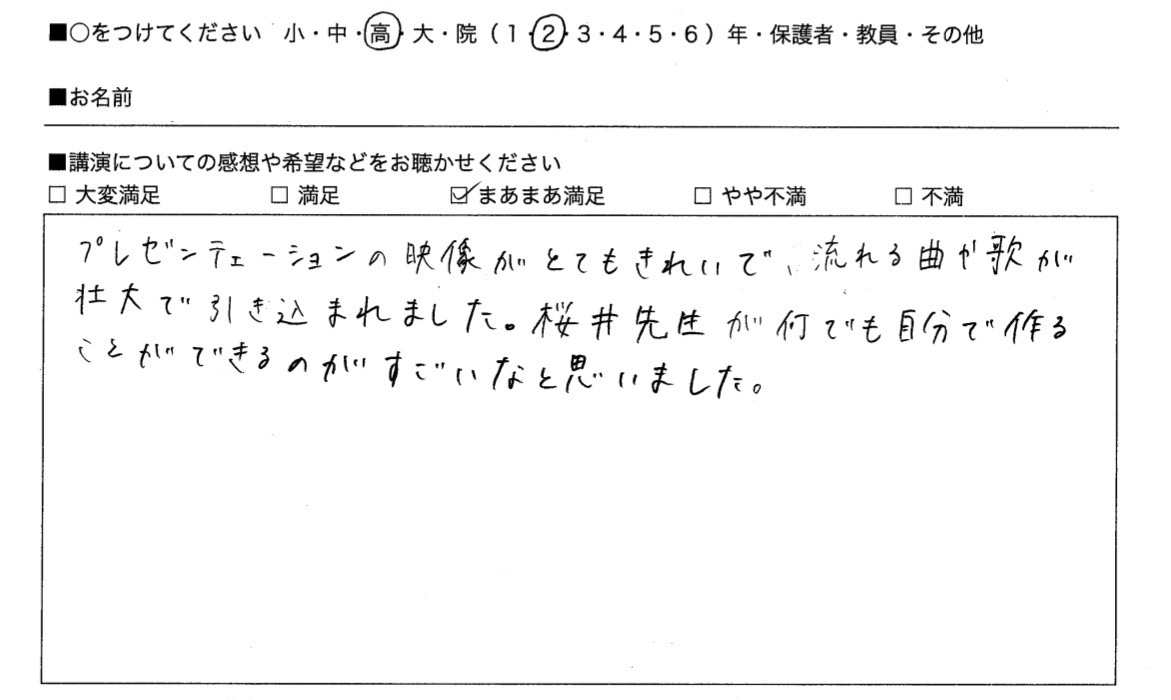 ■○をつけてください 小・中・高・大・院（1・2・3・4・5・6）年・保護者・教員・その他
■お名前
■講演についての感想や希望などをお聴かせください
□ 大変満足 □ 満足 ☑ まあまあ満足 □ やや不満 □ 不満
プレゼンテェーションの映像がとてもきれいで、流れる曲や歌が
壮大で引き込まれました。桜井先生が何でも自分で作る
ことができるのがすごいなと思いました。